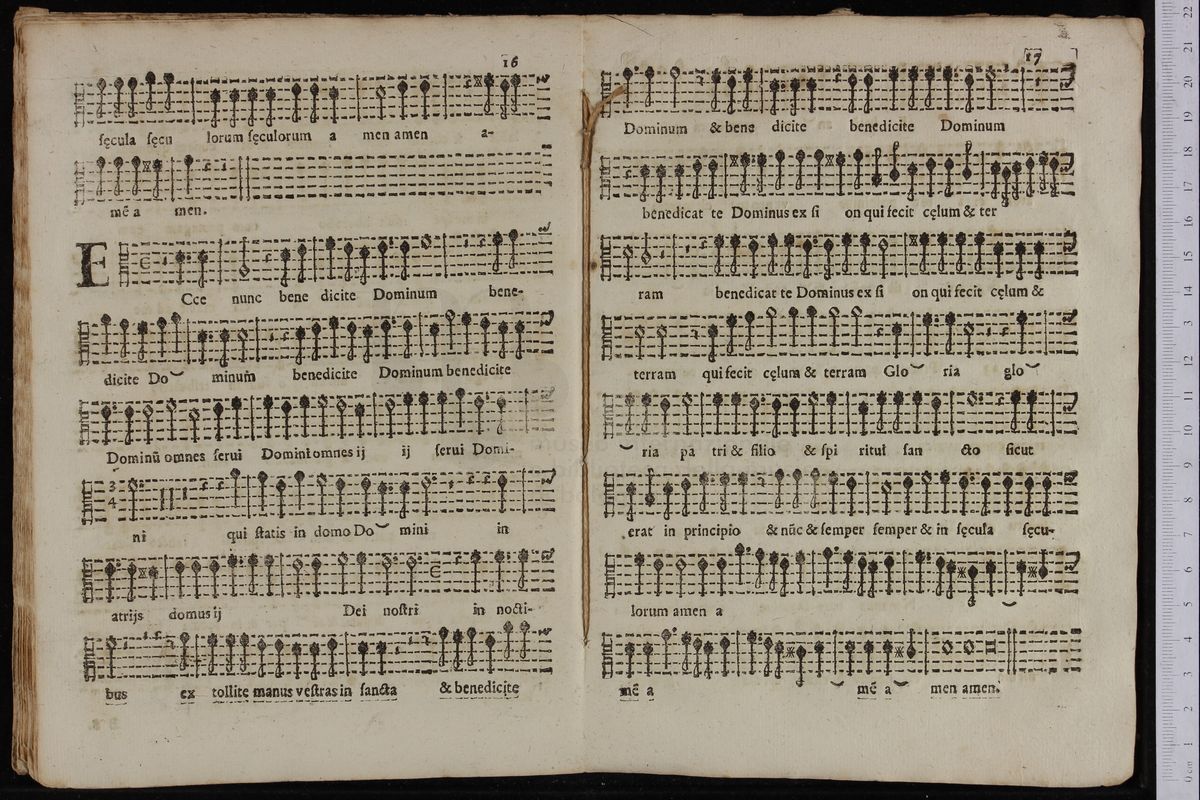 16
sęcula sęcu lorum sęculorum a men amen a-
mē a men.
E
Cce nunc bene dicite Dominum bene-
dicite Do minum benedicite Dominum benedicite
Dominū omnes serui Domini omnes ij ij serui Domi-
3
4
ni qui statis in domo Do mini in
atrijs domus ij Dei nostri in nocti-
bus ex tollite manus vestras in sancta & benedicite
17
Dominum & bene dicite benedicite Dominum
benedicat te Dominus ex si on qui fecit cęlum & ter
ram benedicat te Dominus ex si on qui fecit cęlum &
terram qui fecit cęlum & terram Glo ria glo
ria pa tri & filio & spi ritui san cto sicut
erat in principio & nūc & semper semper & in sęcula sęcu-
lorum amen a
mē a mē a men amen.